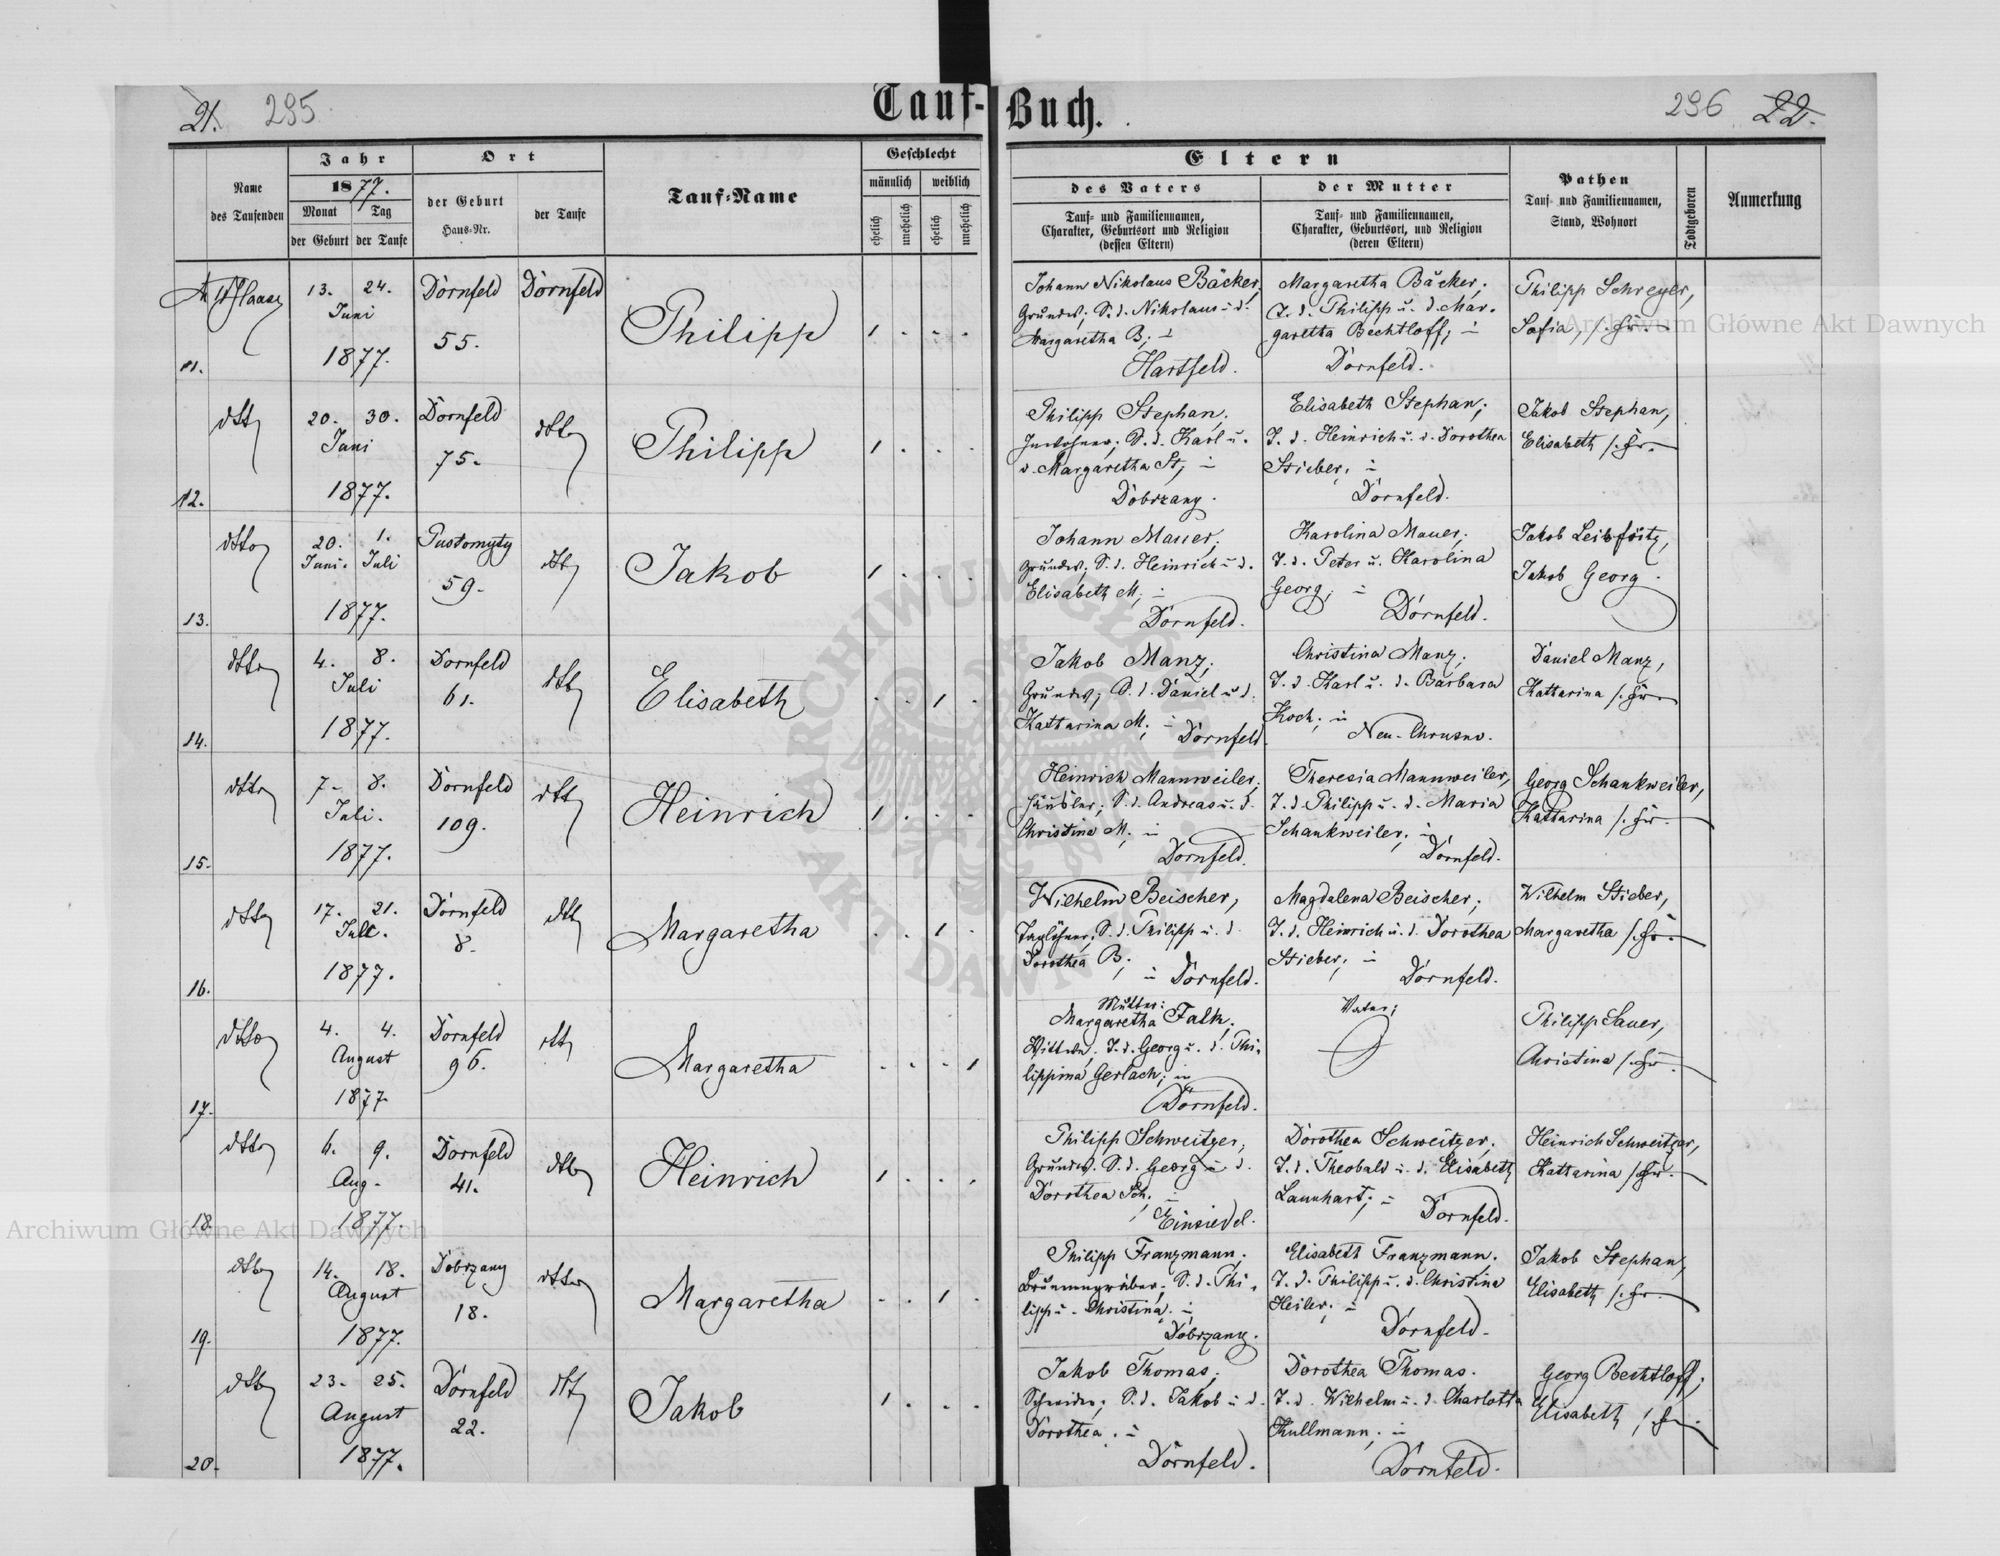 21. 295
Tauf-Buch.
296 22.
Name des Taufenden
Jahr
1877.
Monat Tag
der Geburt der Taufe
Ort
der Geburt
Haus-Nr.
der Taufe
Tauf-Name
Geschlecht
männlich weiblich
ehelich unehelich ehelich unehelich
Eltern
des Vaters
Tauf- und Familiennamen,
Charakter, Geburtsort und Religion
(dessen Eltern)
der Mutter
Tauf- und Familiennamen,
Charakter, Geburtsort, und Religion
(deren Eltern)
Pathen
Tauf- und Familiennamen,
Stand, Wohnort
Todtgeboren
Anmerkung
11.
Haase
13. 24.
Juni
1877.
Dornfeld
55.
Dornfeld
Philipp
1 . . .
Johann Nikolaus Bäcker,
Grundw; S. d. Nikolaus u. d.
Margaretha B; in
Hartfeld.
Margaretha Bäcker;
T. d. Philipp u. d. Mar-
garetha Bechtloff; in
Dornfeld.
Philipp Schreyer,
Sofia,
12.
dtto
20. 30.
Juni
1877.
Dornfeld
75.
dtto
Philipp
1 . . .
Philipp Stephan;
Inwohner; S. d. Karl u.
d. Margaretha St; in
Dobrzany.
Elisabeth Stephan;
T. d. Heinrich u. d. Dorothea
Stieber; in
Dornfeld.
Jakob Stephan,
Elisabeth
13.
dtto
20. 1.
Juni. Juli
1877.
Pustomyty
59.
dtto
Jakob
1 . . .
Johann Mauer;
Grundw; S. d. Heinrich u. d.
Elisabeth M; in
Dornfeld.
Karolina Mauer;
T. d. Peter u. Karolina
Georg; in
Dornfeld.
Jakob Leibfritz,
Jakob Georg.
14.
dtto
4. 8.
Juli
1877.
Dornfeld
61.
dtto
Elisabeth
. . 1 .
Jakob Manz;
Grundw; S. d. Daniel u. d.
Katharina M; in Dornfeld.
Christina Manz;
T. d. Karl u. d. Barbara
Koch; in
Neu-Chrusno.
Daniel Manz,
Katharina
15.
dtto
7. 8.
Juli.
1877.
Dornfeld
109.
dtto
Heinrich
1 . . .
Heinrich Mannweiler;
Häusler; S. d. Andreas u. d.
Christina M; in
Dornfeld.
Theresia Mannweiler,
T. d. Philipp u. d. Maria
Schankweiler; in
Dornfeld.
Georg Schankweiler,
Katharina
16.
dtto
17. 21.
Juli.
1877.
Dornfeld
8.
dtto
Margaretha
. . 1 .
Wilhelm Beischer,
Taglöhner; S. d. Philipp u. d.
Dorothea B;
in Dornfeld.
Magdalena Beischer;
T. d. Heinrich u. d. Dorothea
Stieber; in
Dornfeld.
Wilhelm Stieber,
Margaretha
17.
dtto
4. 4.
August
1877
Dornfeld
96.
dtto
Margaretha
. . . 1
Mutter:
Margaretha Falk;
Wittwe; T. d. Georg u. d. Phi-
lippina Gerlach; in
Dornfeld.
Vater;
Philipp Sauer,
Christina
18.
dtto
6. 9.
Aug.
1877.
Dornfeld
41.
dtto
Heinrich
1 . . .
Philipp Schweitzer;
Grundw. S. d. Georg u. d.
Dorothea Sch; in
Einsiedel.
Dorothea Schweitzer.
T. d. Theobald u. d. Elisabeth
Launhart; in Dornfeld.
Heinrich Schweitzer,
Katharina
19.
dtto
14. 18.
August
1877.
Dobrzany
18.
dtto
Margaretha
. . 1 .
Philipp Franzmann;
Brunnengräber; S. d. Phi-
lipp u. Christina; in
Dobrzany.
Elisabeth Franzmann;
T. d. Philipp u. d. Christina
Heiler; in
Dornfeld.
Jakob Stephan,
Elisabeth
20.
dtto
23. 25.
August
1877.
Dornfeld
22.
dtto
Jakob
1 . . .
Jakob Thomas;
Schneider; S. d. Jakob u. d.
Dorothea; in
Dornfeld.
Dorothea Thomas.
T. d. Wilhelm u. d. Charlotta
Kullmann; in
Dornfeld.
Georg Bechtloff;
Elisabeth
Archiwum Główne Akt Dawnych
Archiwum Główne Akt Dawnych
ARCHIWUM GŁÓWNE
AKT DAWNYCH